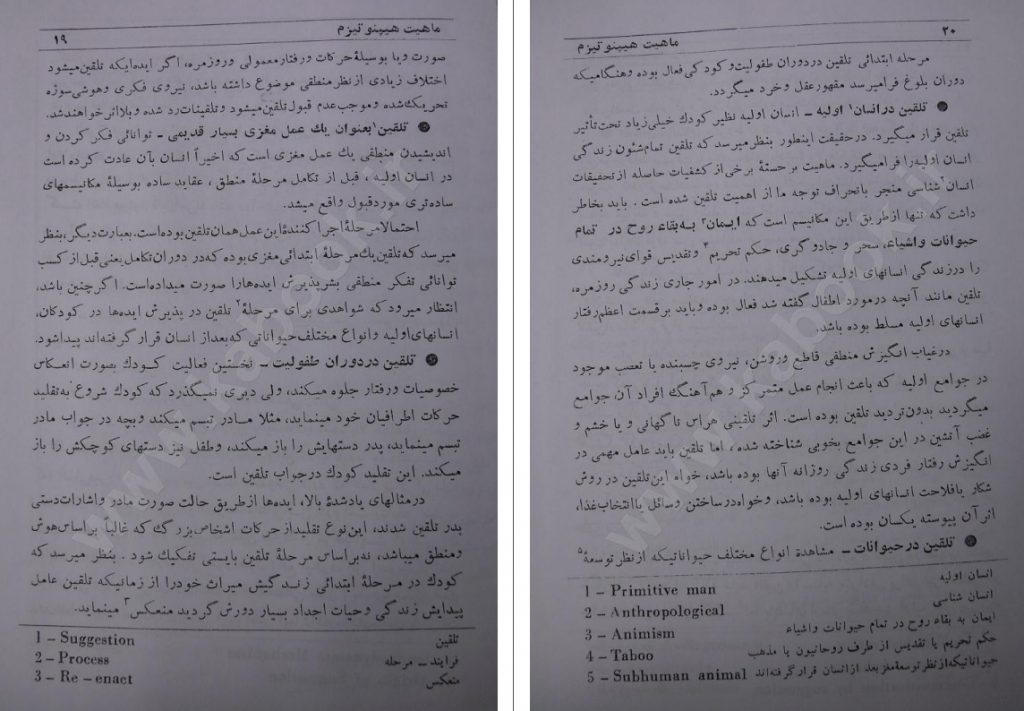 ماهیت هیپنوتیزم
۱۹
صورت ویا بوسیلهٔ حرکات ورفتار معمولی وروزمره، اگر ایده‌ایکه تلقین میشود
اختلاف زیادی از نظر منطقی موضوع داشته باشد، نیروی فکری وهوشی سوژه
تحریک شده وموجب عدم قبول تلقین میشود و تلقینات رد شده و بلااثر خواهند شد.
● تلقین۱ بعنوان یك عمل مغزی بسیار قدیمی – توانائی فکر کردن و
اندیشیدن منطقی یك عمل مغزی است که اخیراً انسان بآن عادت کرده است
در انسان اولیه ، قبل از تکامل مرحلهٔ منطق ، عقاید ساده بوسیلهٔ مکانیسمهای
ساده‌تری مورد قبول واقع میشد.
احتمالا مرحلهٔ اجرا کنندهٔ این عمل همان تلقین بوده است. بعبارت دیگر، بنظر
میرسد که تلقین یك مرحلهٔ ابتدائی مغزی بوده که در دوران تکامل یعنی قبل از کسب
توانائی تفکر منطقی بشر پذیرش ایده‌هارا صورت میداده است. اگر چنین باشد،
انتظار میرود که شواهدی برای مرحلهٔ۲ تلقین در پذیرش ایده‌ها در کودکان،
انسانهای اولیه وانواع مختلف حیواناتی که بعد از انسان قرار گرفته‌اند پیدا شود.
● تلقین در دوران طفولیت – نخستین فعالیت کودك بصورت انعکاس
خصوصیات ورفتار جلوه میکند، ولی دیری نمیگذرد که کودك شروع به تقلید
حرکات اطرافیان خود مینماید، مثلا مادر تبسم میکند وبچه در جواب مادر
تبسم مینماید، پدر دستهایش را باز میکند، وطفل نیز دستهای کوچکش را باز
میکند. این تقلید کودك در جواب تلقین است.
در مثالهای یاد شدهٔ بالا، ایده‌ها از طریق حالت صورت مادر واشارات دستی
پدر تلقین شدند، این نوع تقلید از حرکات اشخاص بزرگ که غالباً بر اساس هوش
ومنطق میباشد، نه بر اساس مرحلهٔ تلقین بایستی تفکیك شود . بنظر میرسد که
کودك در مرحلهٔ ابتدائی زندگیش میراث خودرا از زمانیکه تلقین عامل
پیدایش زندگی وحیات اجداد بسیار دورش گردید منعکس۳ مینماید.
1 – Suggestion تلقین
2 – Process فرایند – مرحله
3 – Re – enact منعکس
۲۰
ماهیت هیپنوتیزم
مرحله ابتدائی تلقین در دوران طفولیت و کودکی فعال بوده وهنگامیکه
دوران بلوغ فرامیرسد مقهور عقل و خرد میگردد.
● تلقین در انسان۱ اولیه – انسان اولیه نظیر کودك خیلی زیاد تحت تأثیر
تلقین قرار میگیرد. در حقیقت اینطور بنظر میرسد که تلقین تمام شئون زندگی
انسان اولیه را فرامیگیرد. ماهیت برجستهٔ برخی از کشفیات حاصله از تحقیقات
انسان۲ شناسی منجر بانحراف توجه ما از اهمیت تلقین شده است . باید بخاطر
داشت که تنها از طریق این مکانیسم است که ایمان۳ به بقاء روح در تمام
حیوانات واشیاء، سحر و جادوگری، حکم تحریم۴ وتقدیس قوای نیرومندی
را در زندگی انسانهای اولیه تشکیل میدهند. در امور جاری زندگی روزمره،
تلقین مانند آنچه در مورد اطفال گفته شد فعال بوده وباید بر قسمت اعظم رفتار
انسانهای اولیه مسلط بوده باشد.
در غیاب انگیزش منطقی قاطع وروشن، نیروی چسبنده با تعصب موجود
در جوامع اولیه که باعث انجام عمل متمرکز و هم‌آهنگ افراد آن جوامع
میگردید بدون تردید تلقین بوده است. اثر تلقینی هراس ناگهانی و یا خشم و
غضب آتشین در این جوامع بخوبی شناخته شده ، اما تلقین باید عامل مهمی در
انگیزش رفتار فردی زندگی روزانه آنها بوده باشد، خواه این تلقین در روش
شکار یا فلاحت انسانهای اولیه بوده باشد، وخواه در ساختن وسائل یا انتخاب غذا،
اثر آن پیوسته یکسان بوده است.
● تلقین در حیوانات – مشاهدهٔ انواع مختلف حیواناتیکه از نظر توسعهٔ۵
1 – Primitive man انسان اولیه
2 – Anthropological انسان شناسی
3 – Animism ایمان به بقاء روح در تمام حیوانات واشیاء
4 – Taboo حکم تحریم یا تقدیس از طرف روحانیون یا مذهب
5 – Subhuman animal حیواناتیکه از نظر توسعهٔ مغز بعد از انسان قرار گرفته‌اند
www.kabook.ir
www.kabook.ir